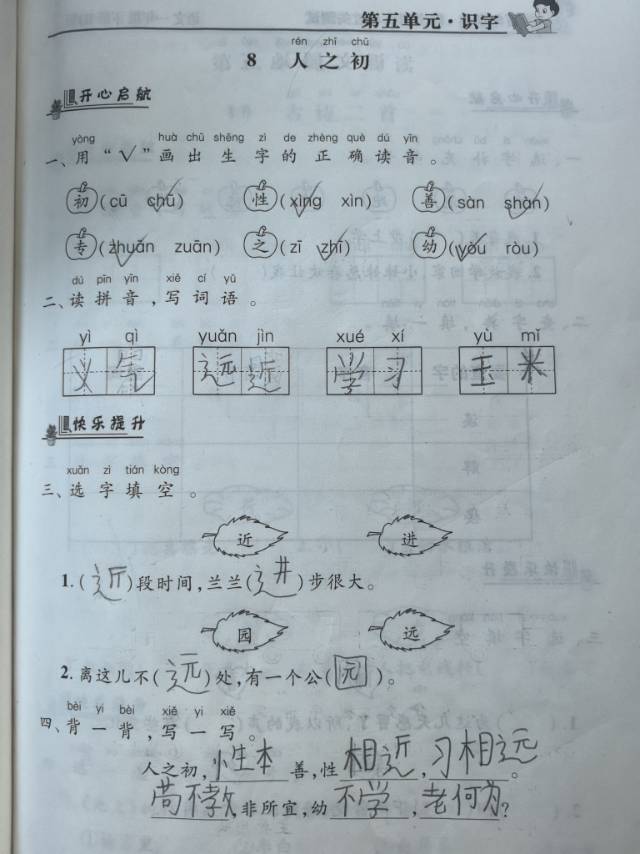 第五单元·识字
rén zhī chū
8 人之初
开心启航
yòng huà chū shēng zì de zhèng què dú yīn
一、用“√”画出生字的正确读音。
初(cū chū) 性(xìng xìn) 善(sàn shàn)
专(zhuān zuān) 之(zī zhī) 幼(yòu ròu)
dú pīn yīn xiě cí yǔ
二、读拼音,写词语。
yì qì yuǎn jìn xué xí yù mǐ
义气 远近 学习 玉米
快乐提升
xuǎn zì tián kòng
三、选字填空。
近 进
1.(近)段时间,兰兰(进)步很大。
园 远
2.离这儿不(远)处,有一个公(园)。
bèi yi bèi xiě yi xiě
四、背一背,写一写。
人之初,性本善,性相近,习相远。
苟不教,非所宜,幼不学,老何为?